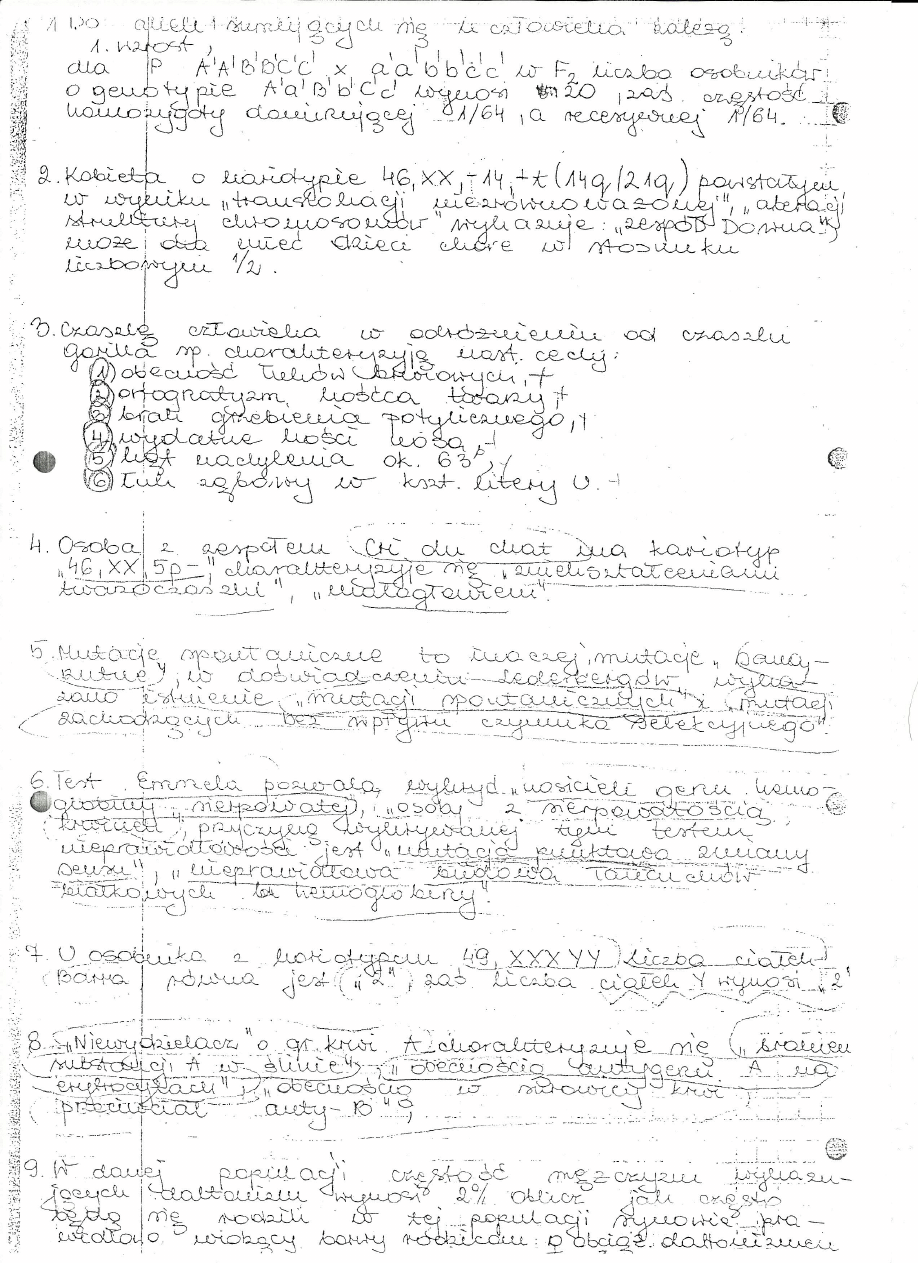 1 Do alleli sumujących się u człowieka należą:
1. wzrost,
dla P A'A'B'B'C'C' x a'a'b'b'c'c' w F2 liczba osobników
o genotypie A'a'B'b'C'c' wynosi 20, zaś częstość
homozygoty dominującej 1/64, a recesywnej 1/64.
2. Kobieta o kariotypie 46, XX, -14, +t (14q/21q) powstałym
w wyniku "translokacji niezrównoważonej", "aberacji
struktury chromosomów" wykazuje: "zespół Downa"
może mieć dzieci chore w stosunku
liczbowym 1/2.
3. Czaszkę człowieka w odróżnieniu od czaszki
goryla sp. charakteryzują nast. cechy:
1) obecność łuków brwiowych, +
2) ortognatyzm kośćca twarzy +
3) brak grzebienia potylicznego, +
4) wydatne kości nosa, +
5) kąt nachylenia ok. 63°, +
6) łuk zębowy w kszt. litery U. +
4. Osoba z zespołem Cri du chat ma kariotyp
"46, XX, 5p-", charakteryzuje się "zniekształceniami
twarzoczaszki", "małogłowiem".
5. Mutacje spontaniczne to inaczej mutacje
w doświadczeniu Lederbergów wyka-
zano istnienie "mutacji spontanicznych" i "mutacji
zachodzących bez wpływu czynnika selekcyjnego".
6. Test Emmela pozwala wykryć "nosicieli genu hemo-
globiny sierpowatej", "osoby z sierpowatością
krwinek", przyczyną wykrywanej tym testem
nieprawidłowości jest "mutacja punktowa zmiany
sensu", "nieprawidłowa budowa łańcuchów
białkowych hemoglobiny".
7. U osobnika z kariotypem 49, XXXYY liczba ciałek
Barra równa jest "2", zaś liczba ciałek Y wynosi "2"
8. "Niewydzielacz" o gr. krwi A charakteryzuje się "brakiem
substancji A w ślinie", "obecnością antygenu A na
erytrocytach", "obecnością w surowicy krwi
przeciwciał anty-B",
9. W danej populacji częstość mężczyzn wykazu-
jących daltonizm wynosi 2% oblicz jak często
będą się rodzili w tej populacji synowie pra-
widłowo widzący barwy rodzicom: o obciąż. daltonizmem